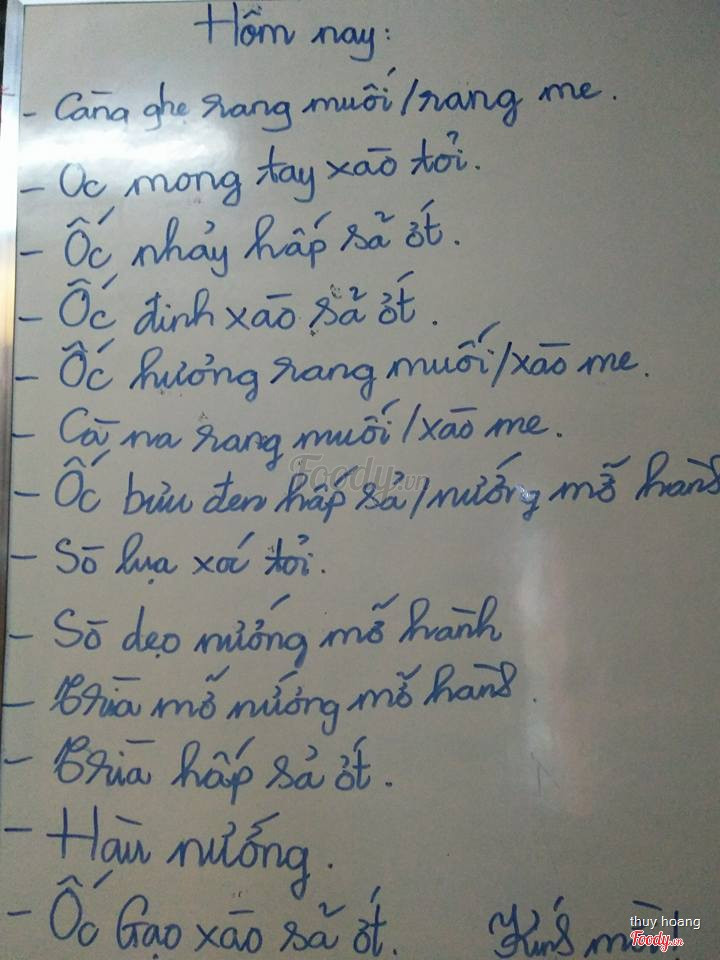 Hôm nay:
- Càng ghẹ rang muối/rang me.
- Oc mong tay xào tỏi.
- Ốc nhảy hấp sã ớt.
- Ốc đinh xào sã ớt.
- Ốc hương rang muối/xào me.
- Cà na rang muối/xào me.
- Ốc bưu đen hấp sả/nướng mỡ hành
- Sò lụa xóc tỏi.
- Sò dẹo nướng mỡ hành
- Trìa mỡ nướng mỡ hành.
- Trìa hấp sả ớt.
- Hàu nướng.
- Ốc Gạo xào sã ớt. Kính mời!
Foody.vn
thuy hoang
Foody.vn